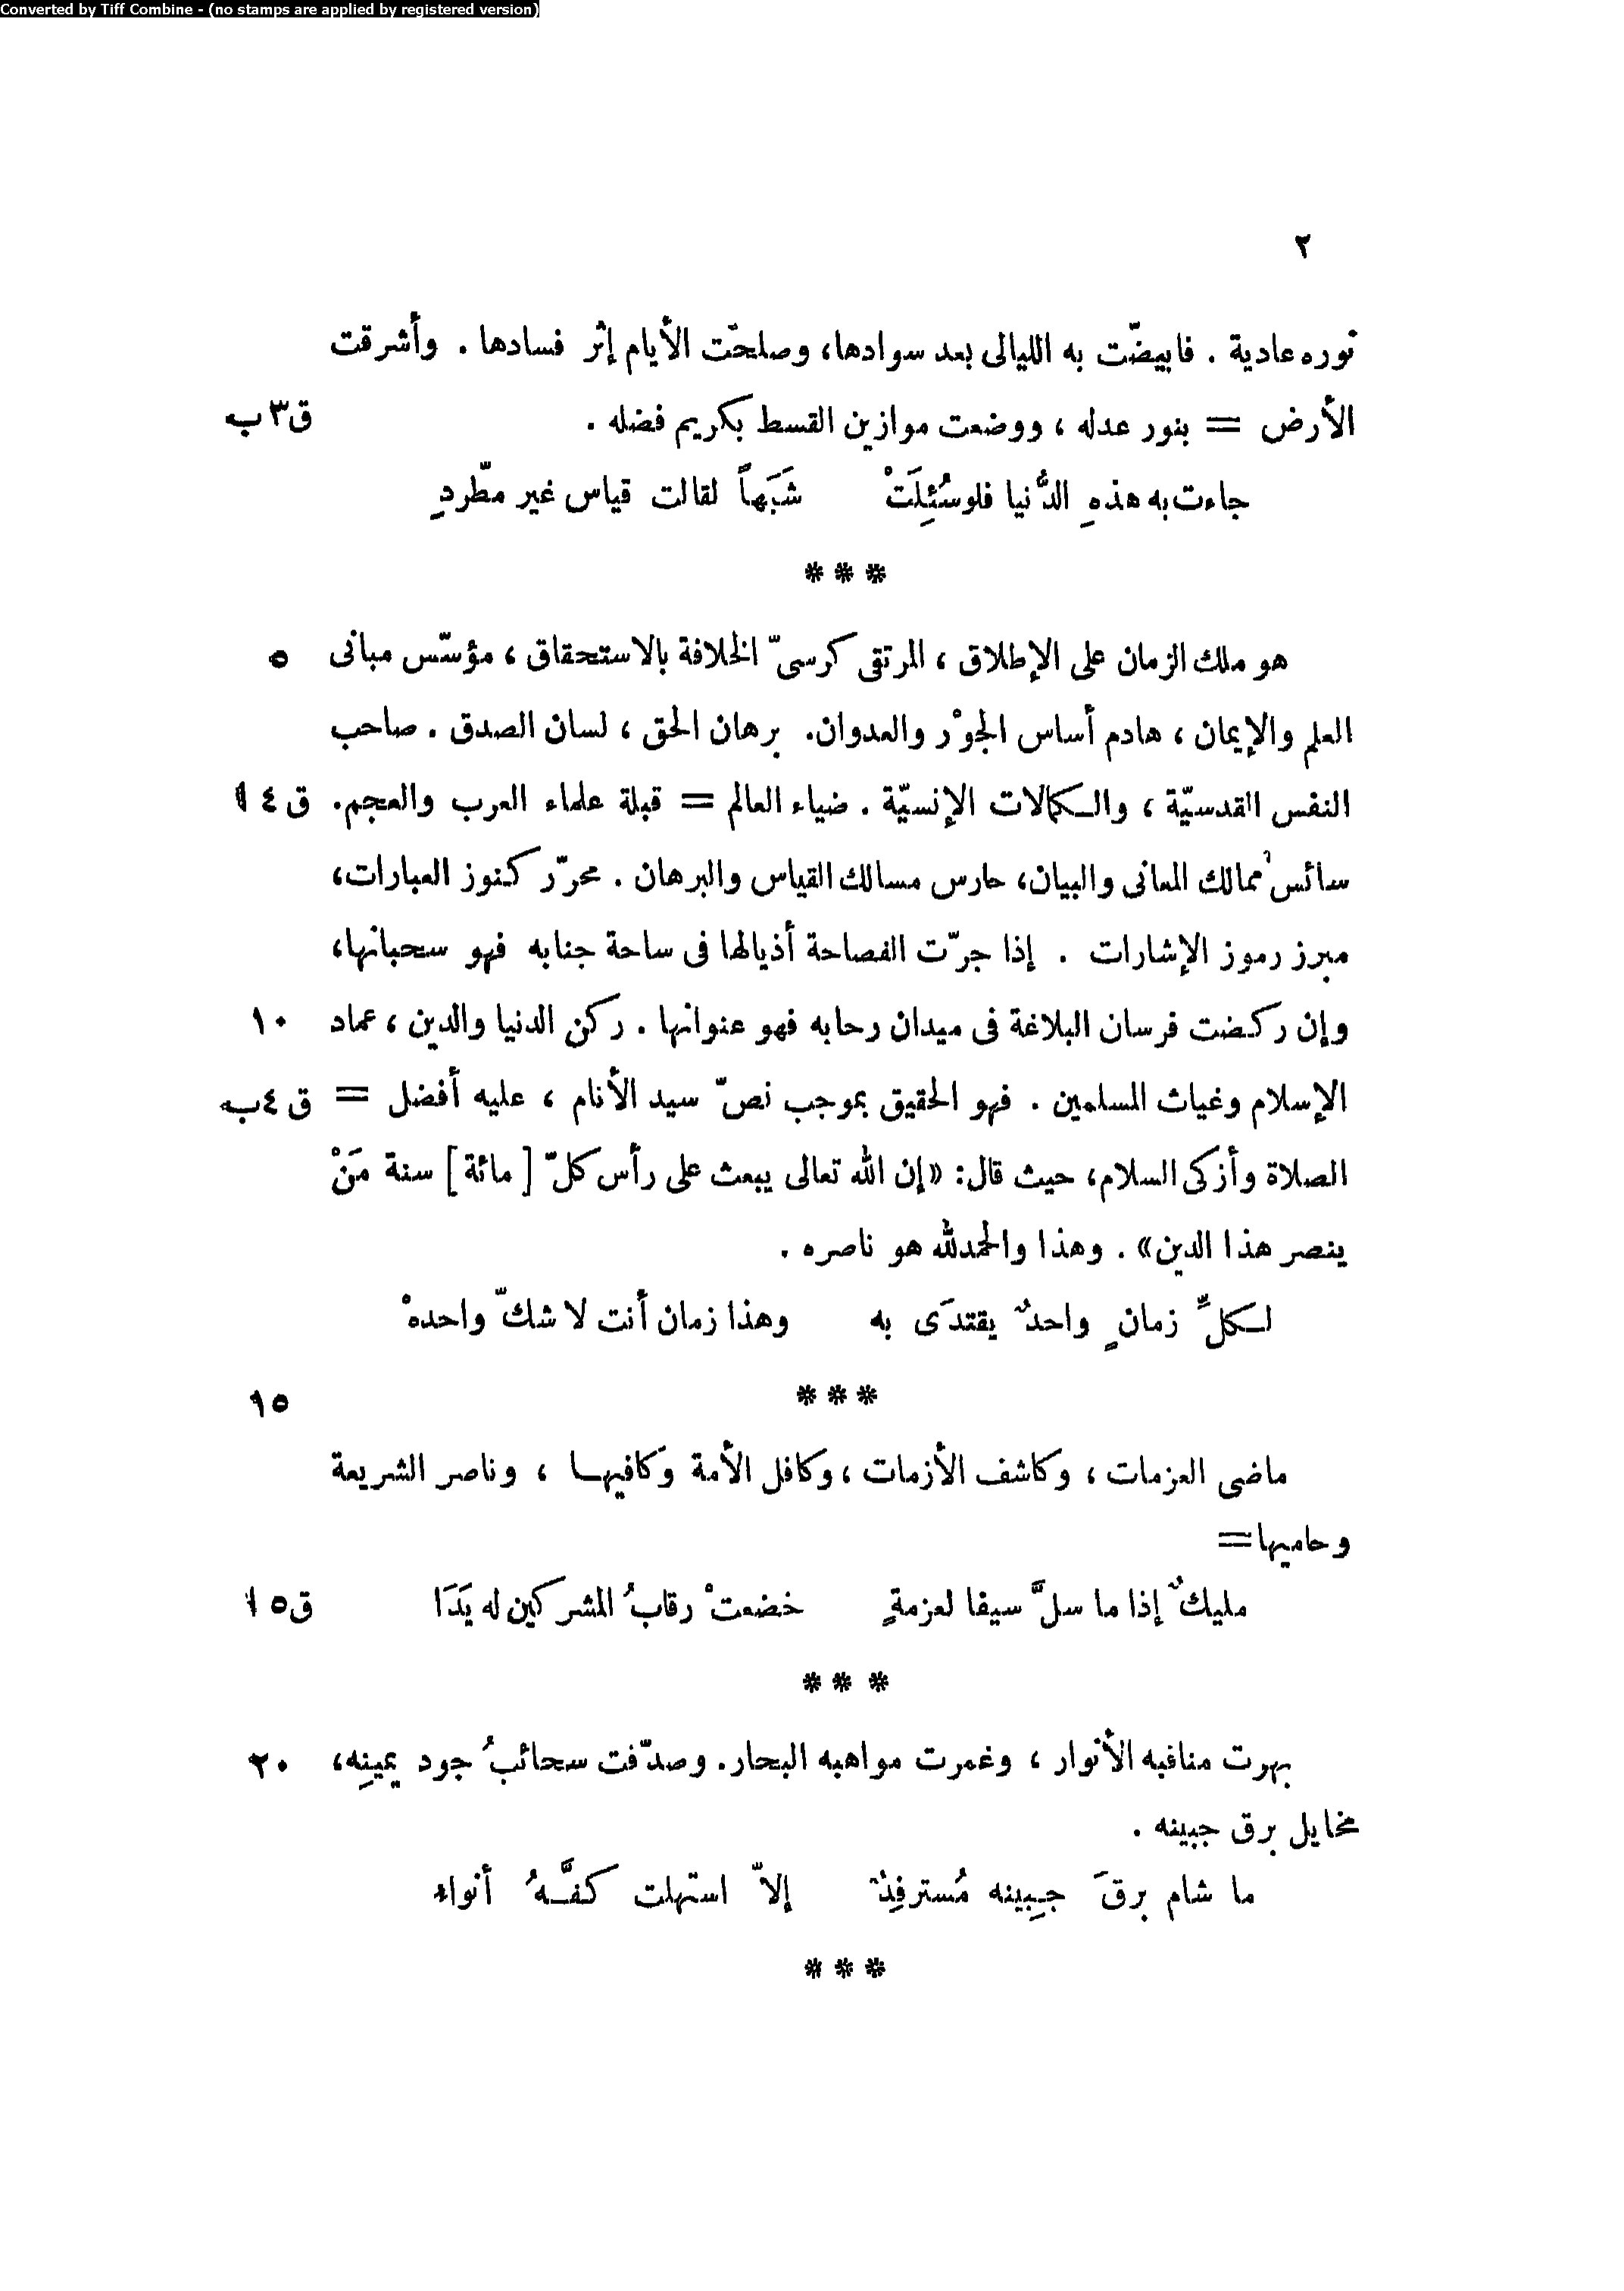 Converted by Tiff Combine - (no stamps are applied by registered version)
٢
نوره عادية . فابيضّت به الليالى بعد سوادها، وصلحت الأيام إثر فسادها . وأشرقت
الأرض = بنور عدله ، ووضعت موازين القسط بكريم فضله . ق٣ب
جاءت به هذهِ الدُّنيا فلو سُئِلَتْ شَبَهاً لقالت قياس غير مطّردِ
* * *
هو ملك الزمان على الإطلاق ، المرتقى كرسىّ الخلافة بالاستحقاق ، مؤسّس مبانى ٥
العلم والإيمان ، هادم أساس الجوْر والعدوان. برهان الحق ، لسان الصدق . صاحب
النفس القدسيّة ، والكمالات الإنسيّة . ضياء العالم = قبلة علماء العرب والعجم. ق٤ ا
سائسُ ممالك المعانى والبيان، حارس مسالك القياس والبرهان . محرّر كنوز العبارات،
مبرز رموز الإشارات . إذا جرّت الفصاحة أذيالها فى ساحة جنابه فهو سحبانها،
وإن ركضت فرسان البلاغة فى ميدان رحابه فهو عنوانها . ركن الدنيا والدين ، عماد ١٠
الإسلام وغياث المسلمين . فهو الحقيق بموجب نصّ سيد الأنام ، عليه أفضل = ق٤ب
الصلاة وأزكى السلام، حيث قال: «إن الله تعالى يبعث على رأس كلّ [ مائة ] سنة مَنْ
ينصر هذا الدين» . وهذا والحمدلله هو ناصره .
لكلِّ زمانٍ واحدٌ يقتدَى به وهذا زمان أنت لا شكّ واحدهْ
* * * ١٥
ماضى العزمات ، وكاشف الأزمات ، وكافل الأمة وكافيها ، وناصر الشريعة
وحاميها =
مليكٌ إذا ما سلَّ سيفا لعزمةٍ خضعتْ رقابُ المشركين له يَدَا ق٥ ا
* * *
بهرت مناقبه الأنوار ، وغمرت مواهبه البحار. وصدّقت سحائبُ جود يمينِه، ٢٠
مخايل برق جبينه .
ما شام برقَ جبِينه مُسترفِدٌ إلاّ استهلت كفَّهُ أنواء
* * *